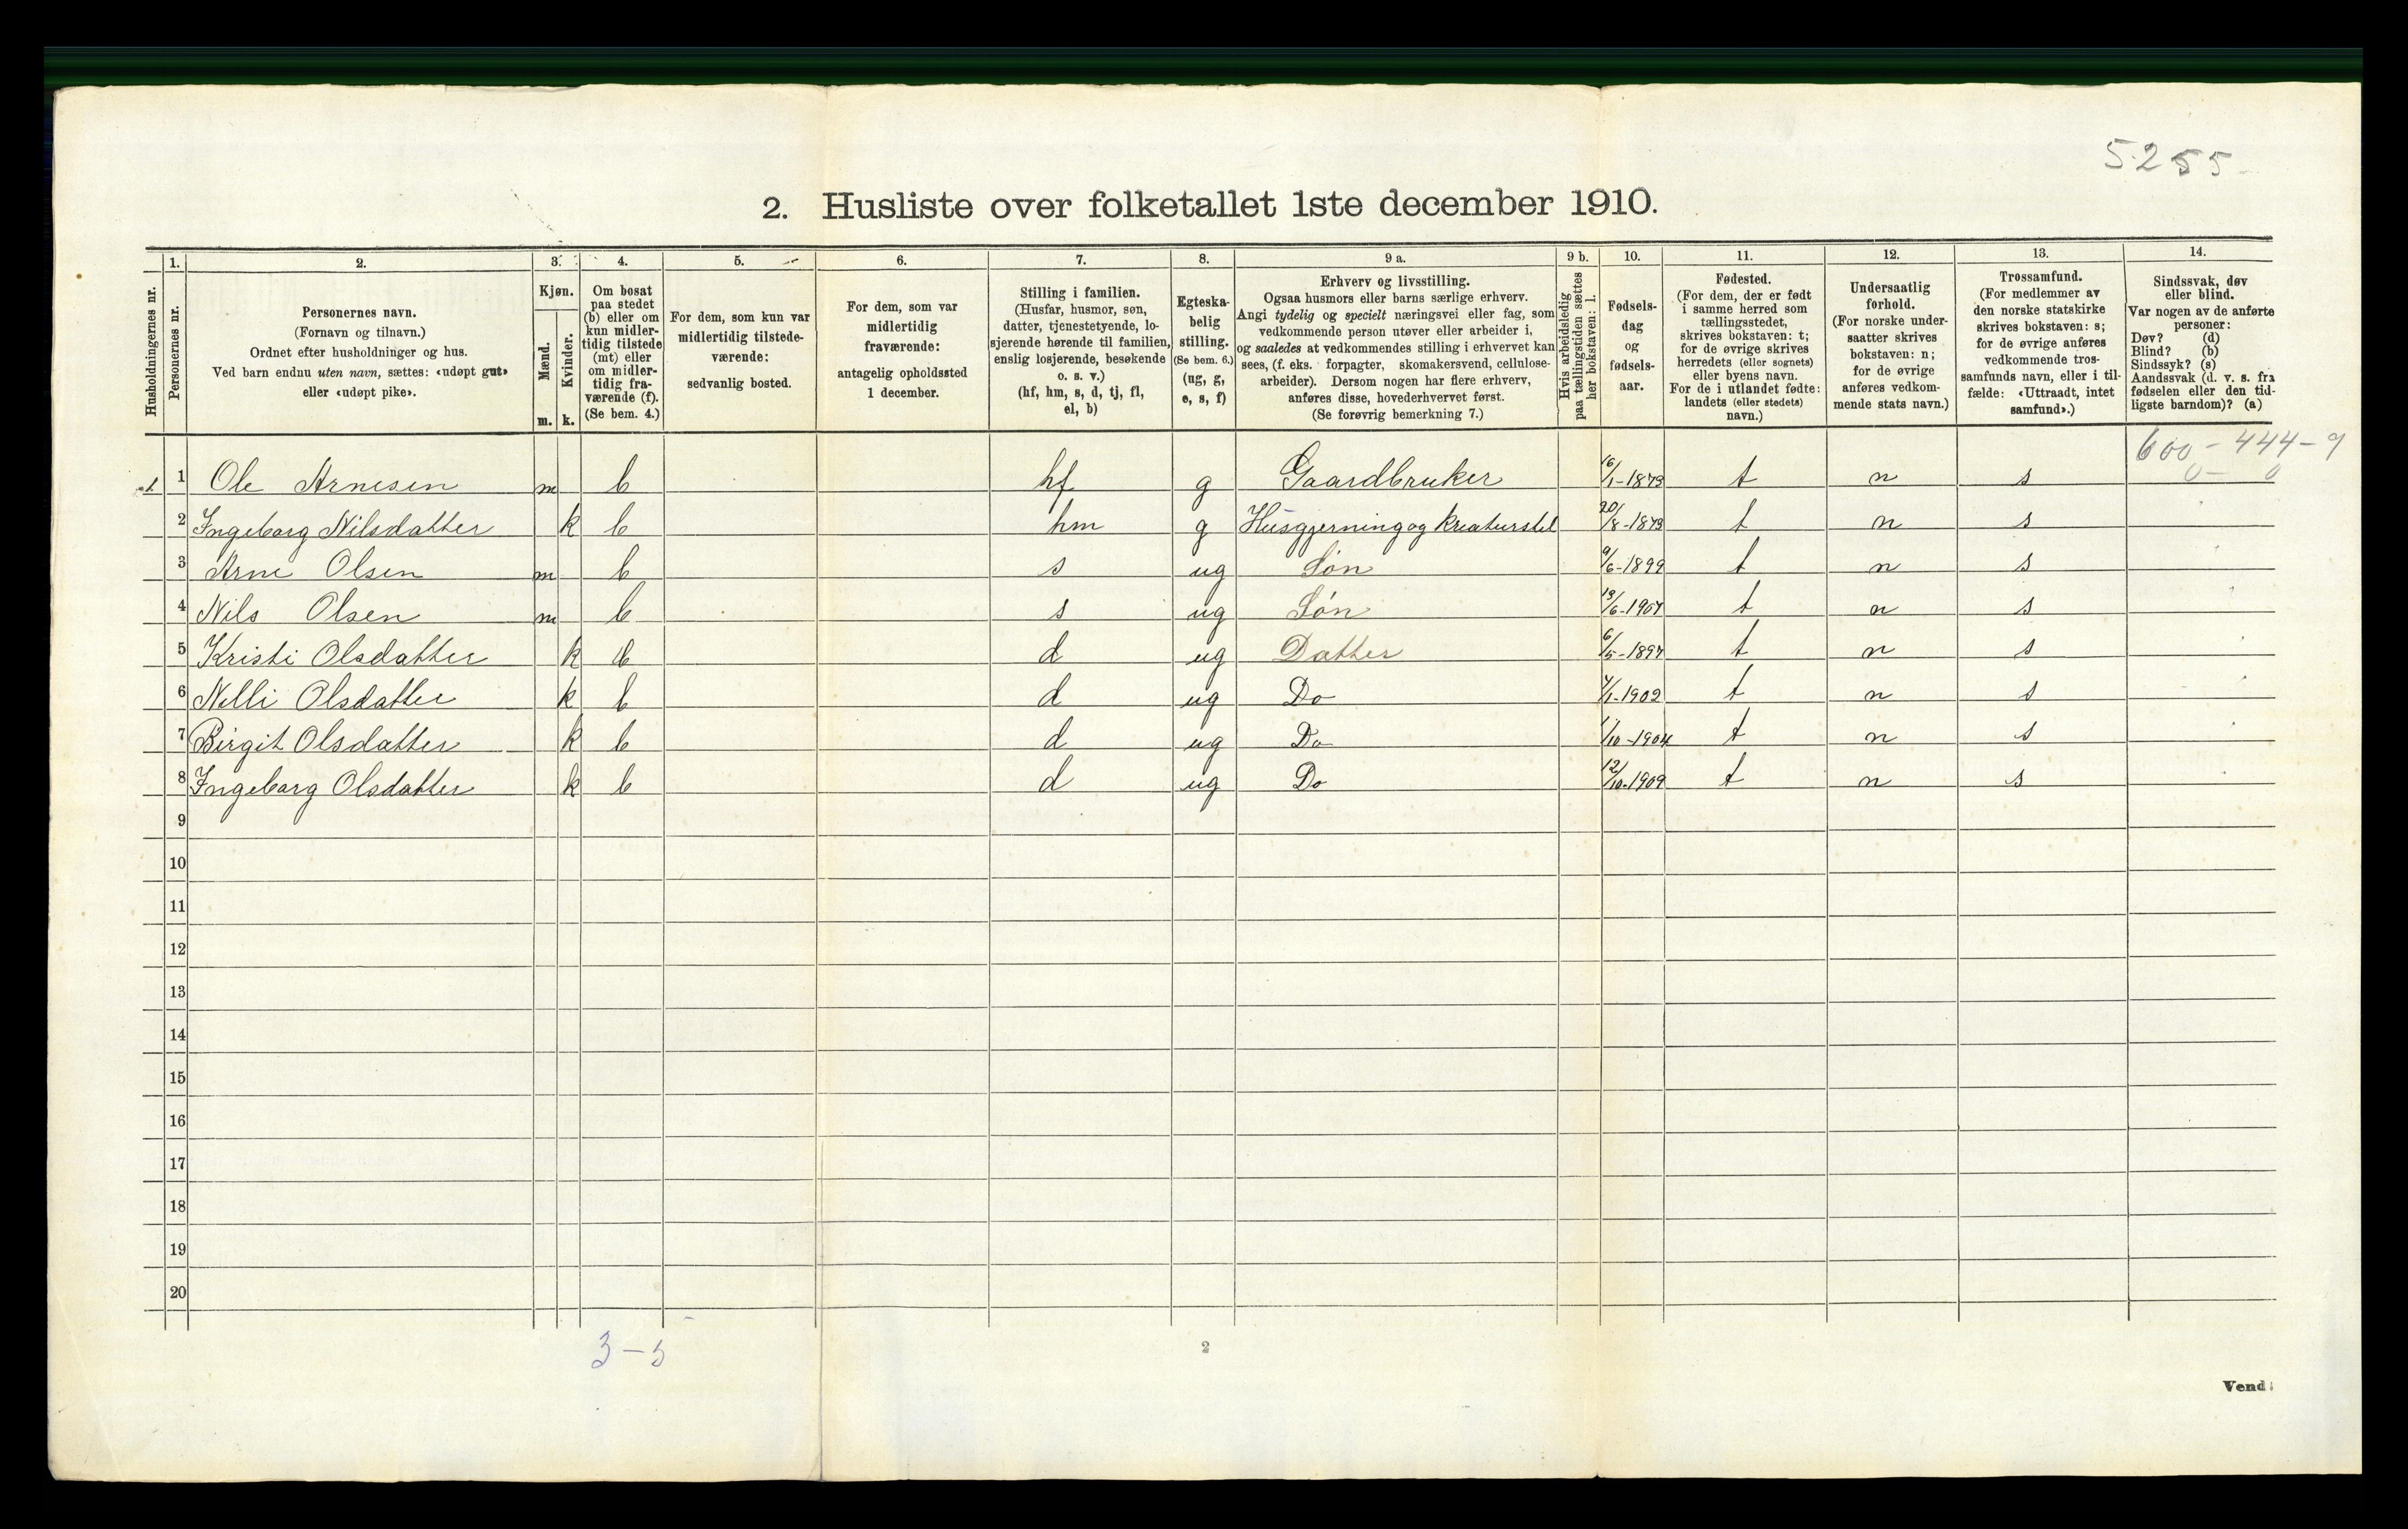 5255
2. Husliste over folketallet 1ste december 1910.
Husholdningernes nr.
1.
Personernes nr.
2.
Personernes navn.
(Fornavn og tilnavn.)
Ordnet efter husholdninger og hus.
Ved barn endnu uten navn, sættes: «udøpt gut»
eller «udøpt pike».
3.
Kjøn.
Mænd.
m.
Kvinder.
k.
4.
Om bosat
paa stedet
(b) eller om
kun midler-
tidig tilstede
(mt) eller
om midler-
tidig fra-
værende (f).
(Se bem. 4.)
5.
For dem, som kun var
midlertidig tilstede-
værende:
sedvanlig bosted.
6.
For dem, som var
midlertidig
fraværende:
antagelig opholdssted
1 december.
7.
Stilling i familien.
(Husfar, husmor, søn,
datter, tjenestetyende, lo-
sjerende hørende til familien,
enslig losjerende, besøkende
o. s. v.)
(hf, hm, s, d, tj, fl,
el, b)
8.
Egteska-
belig
stilling.
(Se bem. 6.)
(ug, g,
e, s, f)
9 a.
Erhverv og livsstilling.
Ogsaa husmors eller barns særlige erhverv.
Angi tydelig og specielt næringsvei eller fag, som
vedkommende person utøver eller arbeider i,
og saaledes at vedkommendes stilling i erhvervet kan
sees, (f. eks. forpagter, skomakersvend, cellulose-
arbeider). Dersom nogen har flere erhverv,
anføres disse, hovederhvervet først.
(Se forøvrig bemerkning 7.)
9 b.
Hvis arbeidsledig
paa tællingstiden sættes
her bokstaven: l.
10.
Fødsels-
dag
og
fødsels-
aar.
11.
Fødested.
(For dem, der er født
i samme herred som
tællingsstedet,
skrives bokstaven: t;
for de øvrige skrives
herredets (eller sognets)
eller byens navn.
For de i utlandet fødte:
landets (eller stedets)
navn.)
12.
Undersaatlig
forhold.
(For norske under-
saatter skrives
bokstaven: n;
for de øvrige
anføres vedkom-
mende stats navn.)
13.
Trossamfund.
(For medlemmer av
den norske statskirke
skrives bokstaven: s;
for de øvrige anføres
vedkommende tros-
samfunds navn, eller i til-
fælde: «Uttraadt, intet
samfund».)
14.
Sindssvak, døv
eller blind.
Var nogen av de anførte
personer:
Døv? (d)
Blind? (b)
Sindssyk? (s)
Aandssvak (d. v. s. fra
fødselen eller den tid-
ligste barndom)? (a)
600 - 444 - 9
0 - 0
1 1 Ole Arnesen m b hf g Gaardbruker 16/1-1873 t n s
2 Ingeborg Nilsdatter k b hm g Husgjerning og kreaturstel 20/8-1873 t n s
3 Arne Olsen m b s ug Søn 9/6-1899 t n s
4 Nils Olsen m b s ug Søn /6-1907 t n s
5 Kristi Olsdatter k b d ug Datter 6/5-1897 t n s
6 Nelli Olsdatter k b d ug Do /1-1902 t n s
7 Birgit Olsdatter k b d ug Do 1/10-1904 t n s
8 Ingeborg Olsdatter k b d ug Do 12/10-1909 t n s
9
10
11
12
13
14
15
16
17
18
19
20
3-5
2
Vend!